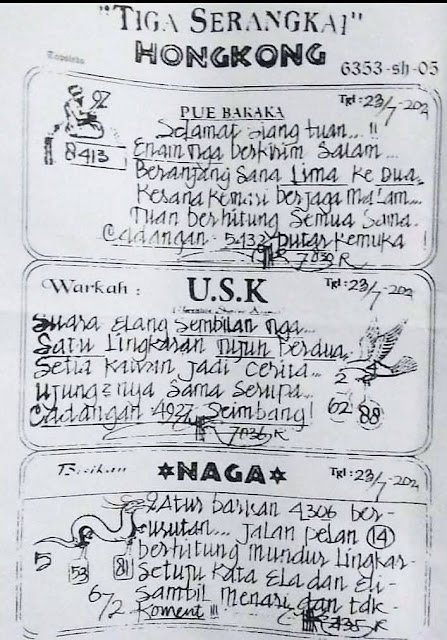 "TIGA SERANGKAI"
HONGKONG
6353-sh-05
92
8413
PUE BAKAKA
Tgl: 23/7-202
Selamat siang tuan...!!
Enam tiga berkirim salam...
Beranjang sana Lima ke Dua.
Kesana kemari berjaga malam...
Tuan berhitung semua sama.
Cadangan 5432 putar kemuka !
7039 R
Warkah :
U.S.K
Tgl: 23/7-202
Suara Elang Sembilan tiga...
Satu Lingkaran tujuh berdua.
Setia kawan jadi cerita...
Ujung2nya sama serupa...
Cadangan 4927 Seimbang!
2
62 88
7036 R
Bisikan
NAGA
Tgl: 23/7-202
Atur barisan 4306 ber-
urutan.... jalan pelan 14
berhitung mundur lingkar-
Setuju kata Ela dan Eli-
Sambil menari dan tak-
Koment !!!
5
53 81
6/2